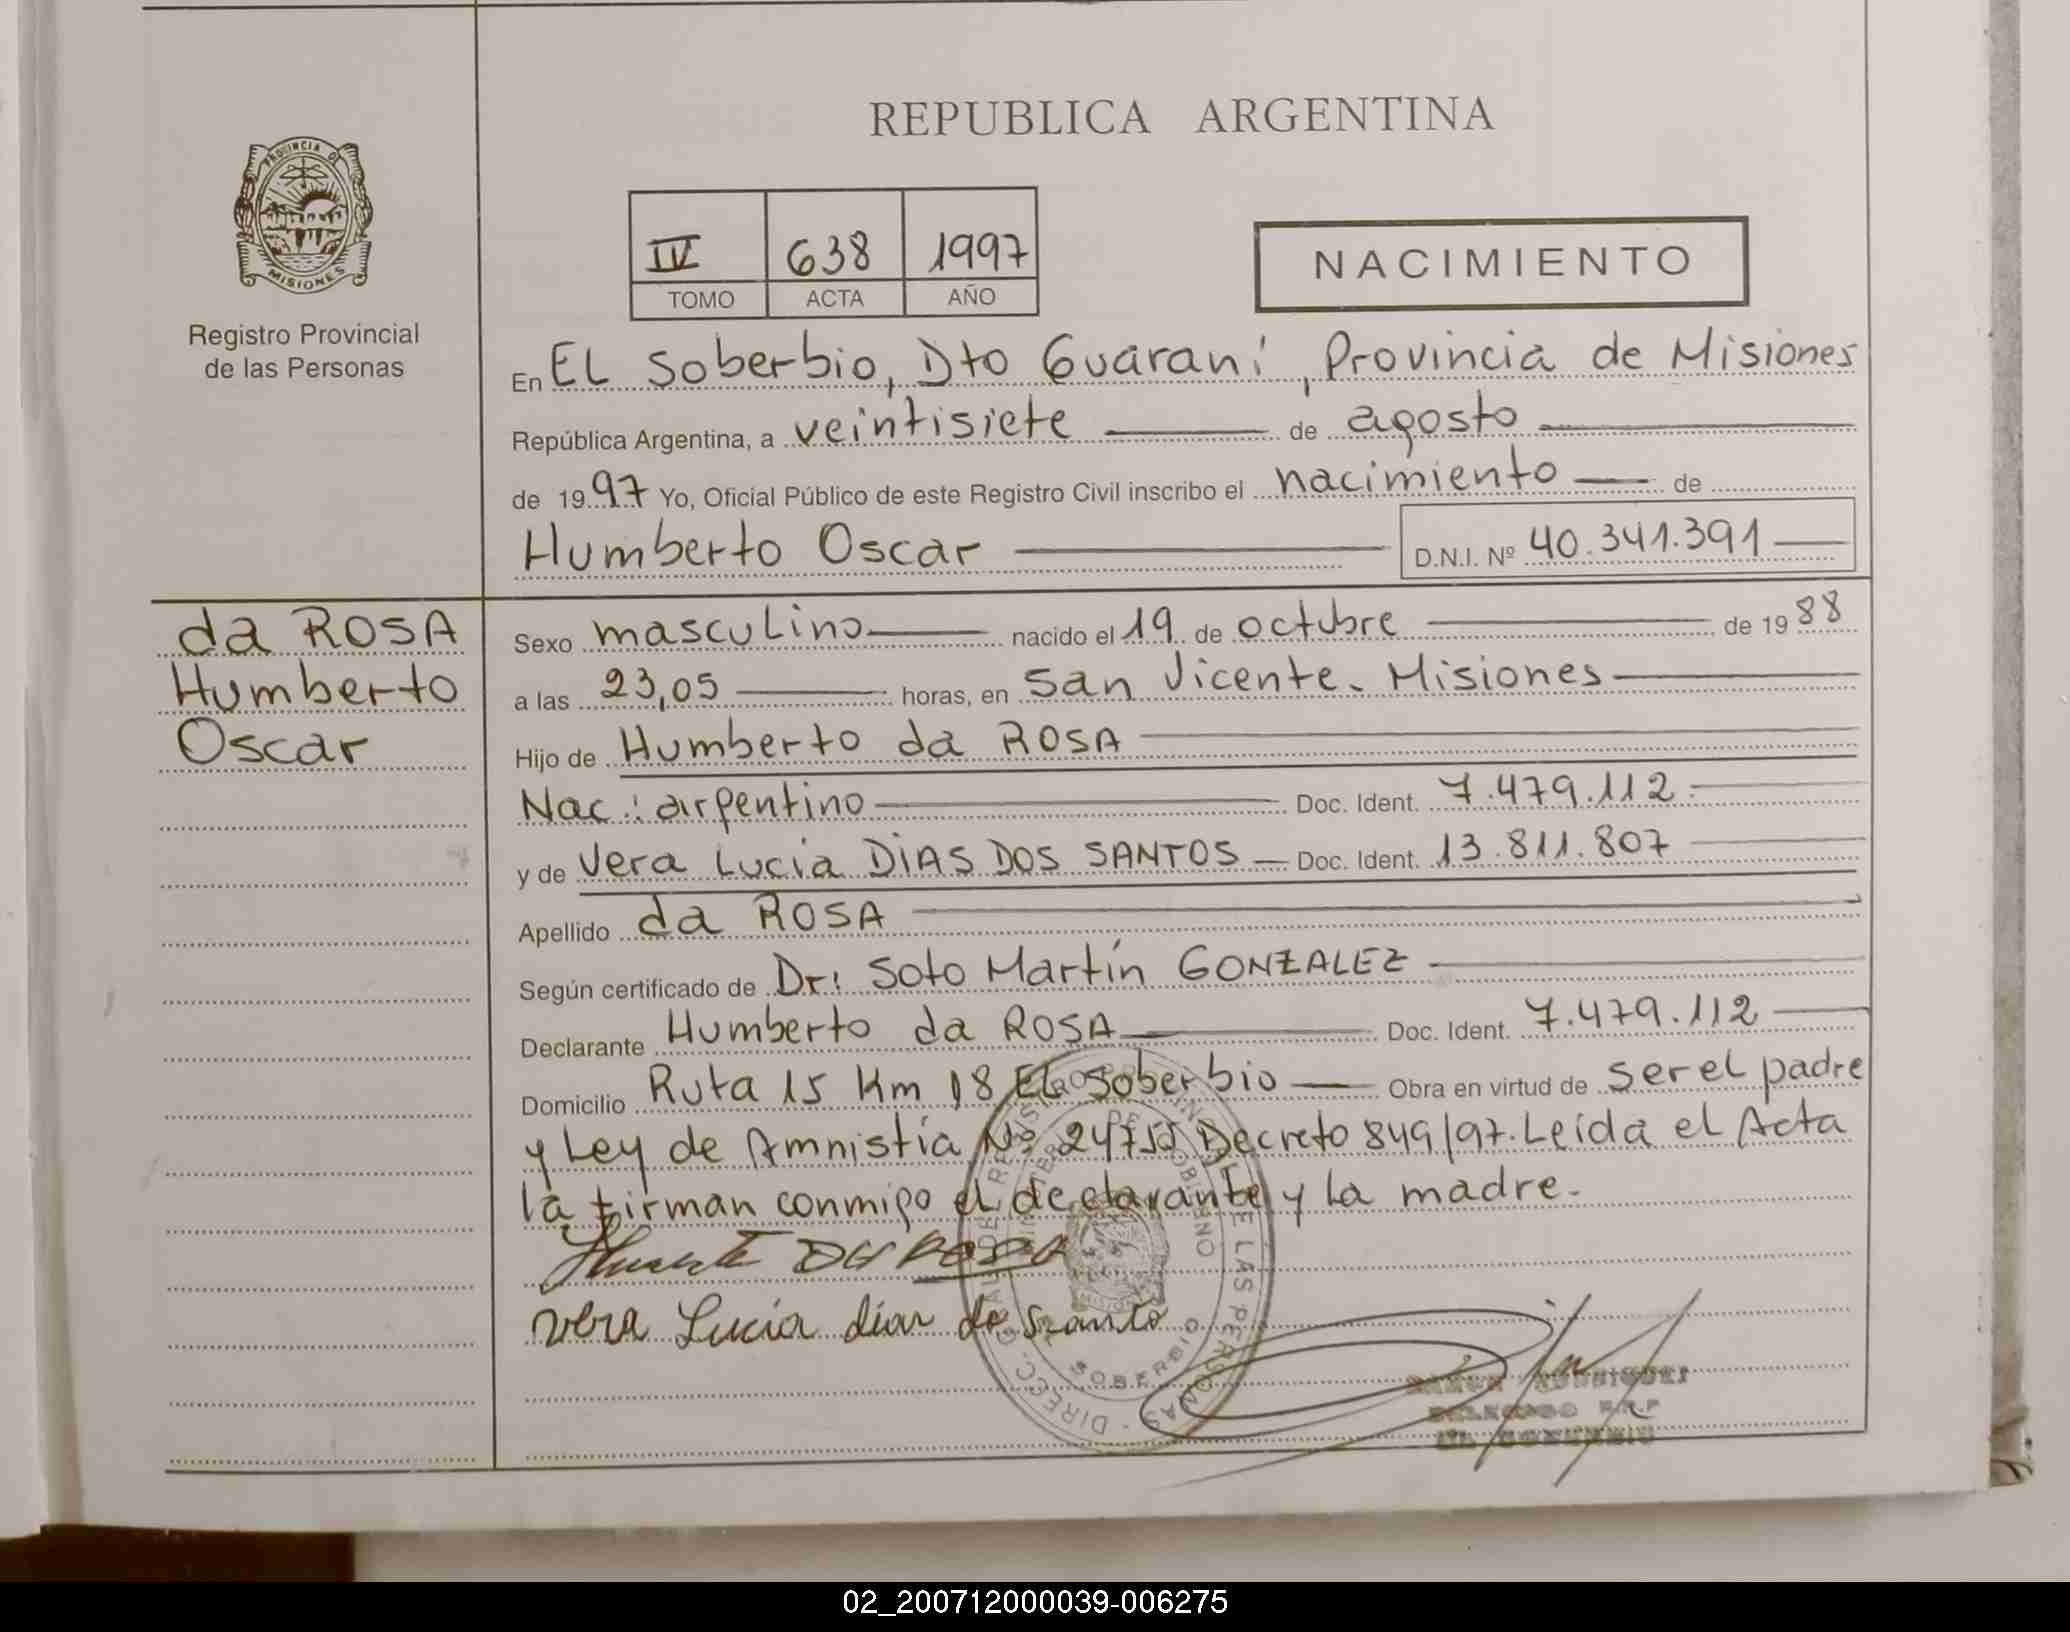 REPUBLICA ARGENTINA
PROVINCIA DE
MISIONES
Registro Provincial
de las Personas
IV 638 1997
TOMO ACTA AÑO
NACIMIENTO
En EL Soberbio, Dto Guaraní, Provincia de Misiones
República Argentina, a veintisiete de agosto
de 1997 Yo, Oficial Público de este Registro Civil inscribo el nacimiento de
Humberto Oscar D.N.I. Nº 40.341.391
da ROSA
Humberto
Oscar
Sexo masculino nacido el 19 de octubre de 1988
a las 23,05 horas, en San Vicente. Misiones
Hijo de Humberto da ROSA
Nac.: argentino Doc. Ident. 7.479.112
y de Vera Lucia DIAS DOS SANTOS Doc. Ident. 13.811.807
Apellido da ROSA
Según certificado de Dr: Soto Martín GONZALEZ
Declarante Humberto da ROSA Doc. Ident. 7.479.112
Domicilio Ruta 15 Km 18 EL Soberbio Obra en virtud de ser el padre
y Ley de Amnistía Nº 24755 Decreto 849/97. Leída el Acta
la firman conmigo el declarante y la madre.
DA ROSA
Vera Lucia dias do Santo
SOBERBIO
02_200712000039-006275